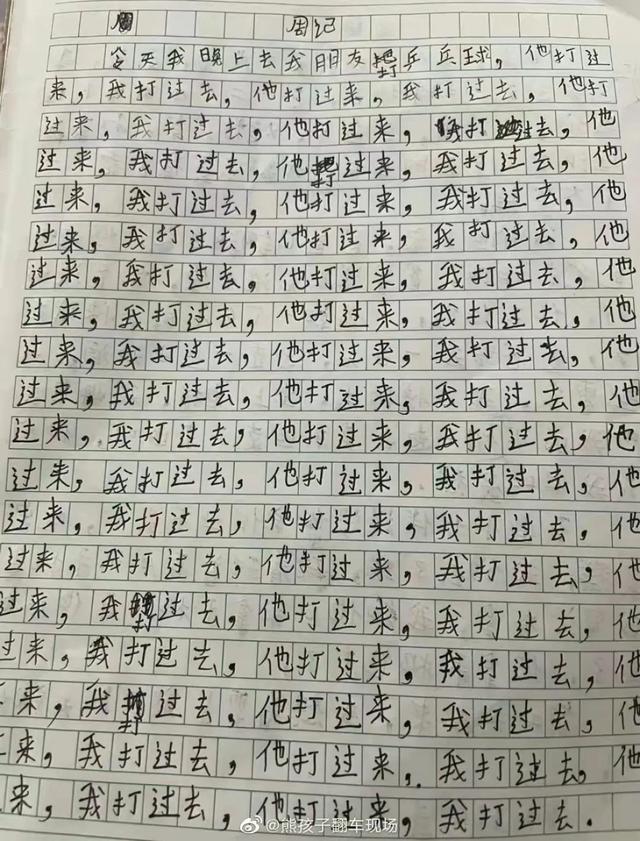 周记
今天我晚上去我朋友打乒乓球，他打过
来，我打过去，他打过来，我打过去，他打
过来，我打过去，他打过来，我打过去，他
过来，我打过去，他打过来，我打过去，他
过来，我打过去，他打过来，我打过去，他
过来，我打过去，他打过来，我打过去，他
过来，我打过去，他打过来，我打过去，他
过来，我打过去，他打过来，我打过去，他
过来，我打过去，他打过来，我打过去，他
过来，我打过去，他打过来，我打过去，他
过来，我打过去，他打过来，我打过去，他
过来，我打过去，他打过来，我打过去，他
过来，我打过去，他打过来，我打过去，他
过来，我打过去，他打过来，我打过去，他
过来，我打过去，他打过来，我打过去，他
过来，我打过去，他打过来，我打过去，他
来，我打过去，他打过来，我打过去，他
来，我打过去，他打过来．我打过去，他
来，我打过去，他打过来，我打过去.
@熊孩子翻车现场